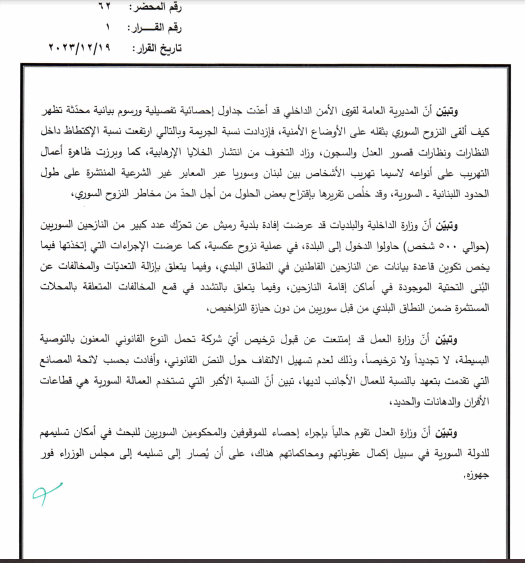 رقم المحضر: ٦٢
رقم القـــرار: ١
تاريخ القرار: ٢٠٢٣/١٢/١٩
وتبيّن أنّ المديرية العامة لقوى الأمن الداخلي قد أعدّت جداول إحصائية تفصيلية ورسوم بيانية محدّثة تظهر
كيف ألقى النزوح السوري بثقله على الأوضاع الأمنية، فإزدادت نسبة الجريمة وبالتالي ارتفعت نسبة الإكتظاظ داخل
النظارات ونظارات قصور العدل والسجون، وزاد التخوف من انتشار الخلايا الإرهابية، كما وبرزت ظاهرة أعمال
التهريب على أنواعه لاسيما تهريب الأشخاص بين لبنان وسوريا عبر المعابر غير الشرعية المنتشرة على طول
الحدود اللبنانية ـ السورية، وقد خلُص تقريرها بإقتراح بعض الحلول من أجل الحدّ من مخاطر النزوح السوري،
وتبيّن أنّ وزارة الداخلية والبلديات قد عرضت إفادة بلدية رميش عن تحرّك عدد كبير من النازحين السوريين
(حوالي ٥٠٠ شخص) حاولوا الدخول إلى البلدة، في عملية نزوح عكسية، كما عرضت الإجراءات التي إتخذتها فيما
يخص تكوين قاعدة بيانات عن النازحين القاطنين في النطاق البلدي، وفيما يتعلق بإزالة التعديّات والمخالفات عن
البُنى التحتية الموجودة في أماكن إقامة النازحين، وفيما يتعلق بالتشدد في قمع المخالفات المتعلقة بالمحلات
المستثمرة ضمن النطاق البلدي من قبل سوريين من دون حيازة التراخيص،
وتبيّن أنّ وزارة العمل قد إمتنعت عن قبول ترخيص أيّ شركة تحمل النوع القانوني المعنون بالتوصية
البسيطة، لا تجديداً ولا ترخيصاً، وذلك لعدم تسهيل الالتفاف حول النصّ القانوني، وأفادت بحسب لائحة المصانع
التي تقدمت بتعهد بالنسبة للعمال الأجانب لديها، تبين أنّ النسبة الأكبر التي تستخدم العمالة السورية هي قطاعات
الأفران والدهانات والحديد،
وتبيّن أنّ وزارة العدل تقوم حالياً بإجراء إحصاء للموقوفين والمحكومين السوريين للبحث في أمكان تسليمهم
للدولة السورية في سبيل إكمال عقوباتهم ومحاكماتهم هناك، على أن يُصار إلى تسليمه إلى مجلس الوزراء فور
جهوزه.